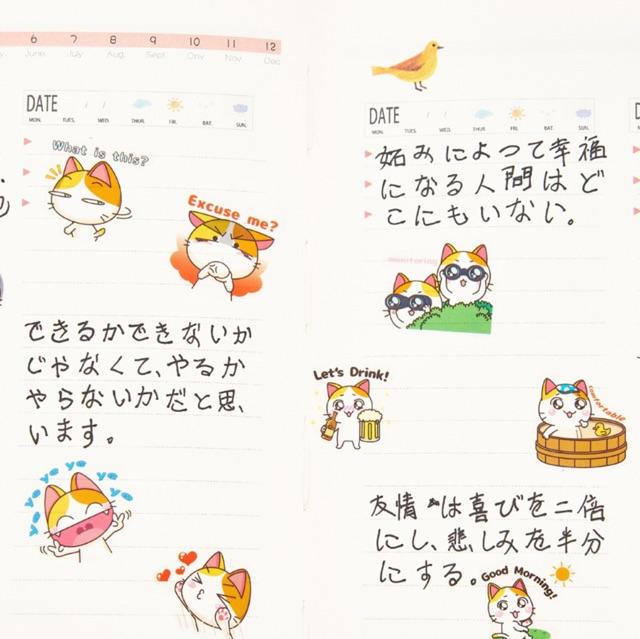 6 7 8 9 10 11 12
June. July. Aug. Sept. Nov. Dec
DATE / /
MON. TUES. WED. THUR. FRI. SAT. SUN.
What is this?
Excuse me?
できるかできないか
じゃなくて、やるか
やらないかだと思、
います。
yo yo yo yo yo
DATE / /
MON. TUES. WED. THUR. FRI. SAT. SUN.
妬みによって幸福
になる人間はど
こにもいない。
monitoring
Let's Drink!
comfortable
友情は喜びを二倍
にし、悲しみを半分
にする。
Good Morning!